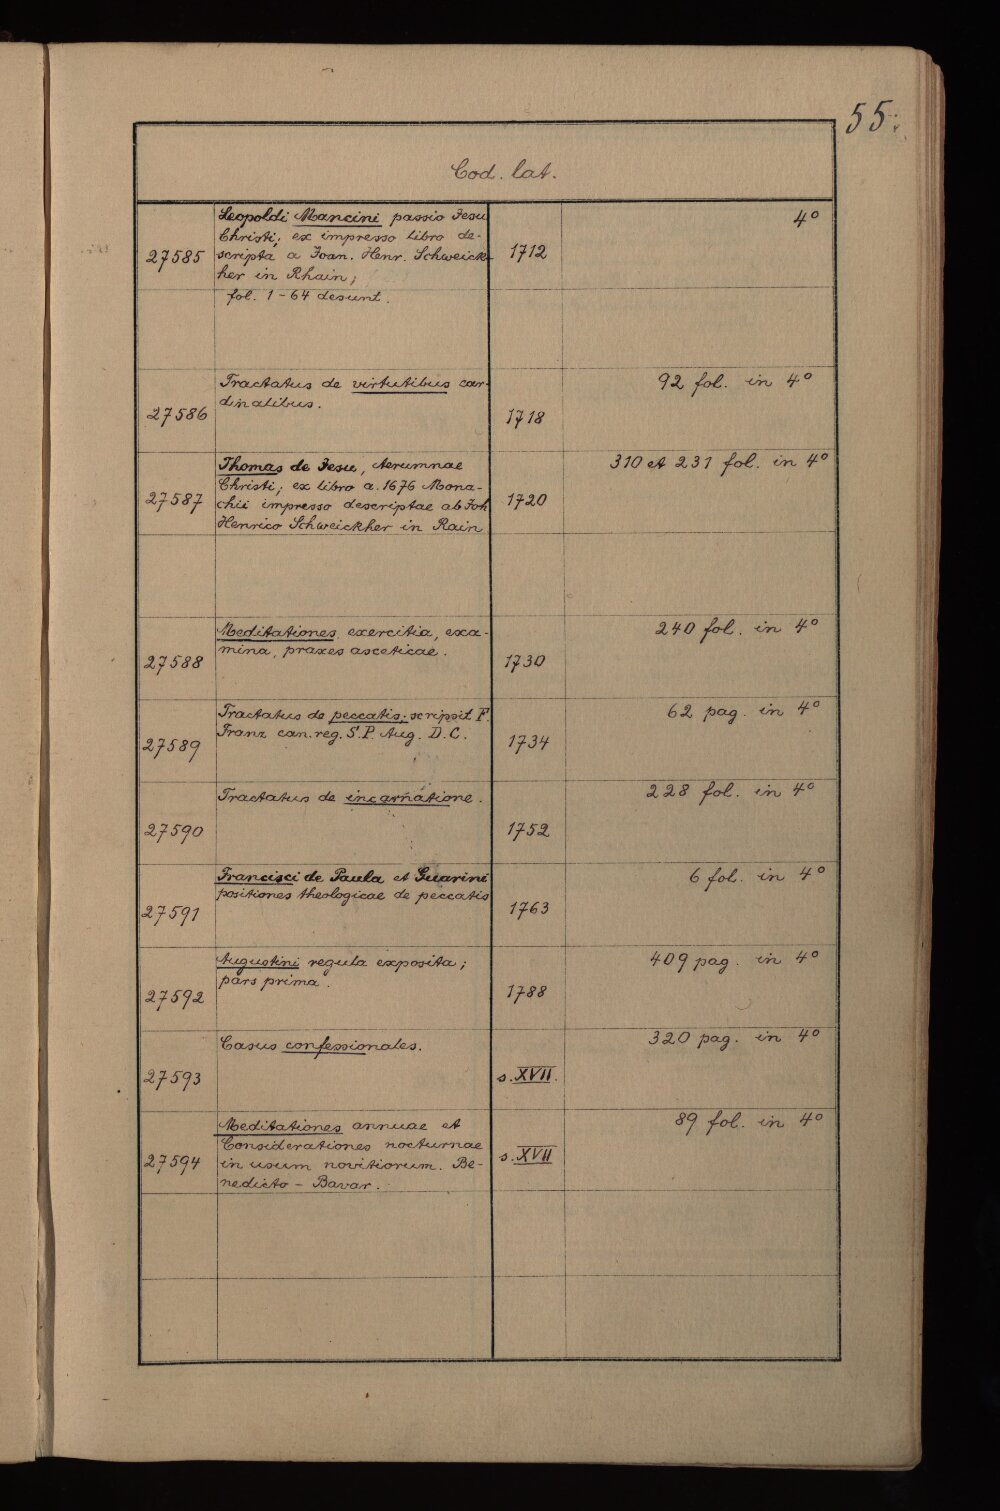 55.
Cod. lat.
27585
Leopoldi Mancini passio Jesu
Christi; ex impresso libro de-
scripta a Joan. Henr. Schweick-
her in Rhain;
fol. 1-64 desunt.
1712
4°
27586
Tractatus de virtutibus car-
dinalibus.
1718
92 fol. in 4°
27587
Thomas de Jesu, Aerumnae
Christi; ex libro a. 1676 Mona-
chii impresso descriptae ab Joh
Henrico Schweickher in Rain
1720
310 et 231 fol. in 4°
27588
Meditationes exercitia, exa-
mina, praxes asceticae.
1730
240 fol. in 4°
27589
Tractatus de peccatis; scripsit F.
Franz can. reg. S. P. Aug. D. C.
1734
62 pag. in 4°
27590
Tractatus de incarnatione.
1752
228 fol. in 4°
27591
Francisci de Paula et Guarini
positiones theologicae de peccatis
1763
6 fol. in 4°
27592
Augustini regula exposita;
pars prima.
1788
409 pag. in 4°
27593
Casus confessionales.
s. XVII.
320 pag. in 4°
27594
Meditationes annuae et
Considerationes nocturnae
in usum novitiorum. Be-
nedicto - Bavar.
s. XVII
89 fol. in 4°